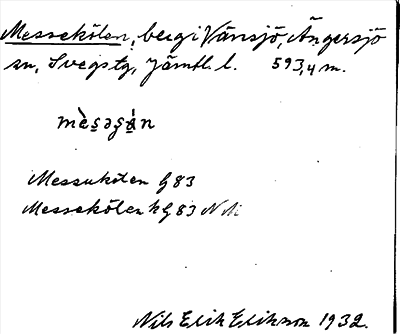 Messekölen, berg i Vänsjö, Ängersjö
sn, Svegs tg, Jämtl. l. 593,4 m.
mèsəşán
Messukölen G 83
Messekölen k G 83 N
Nils Erik Erikson 1932.